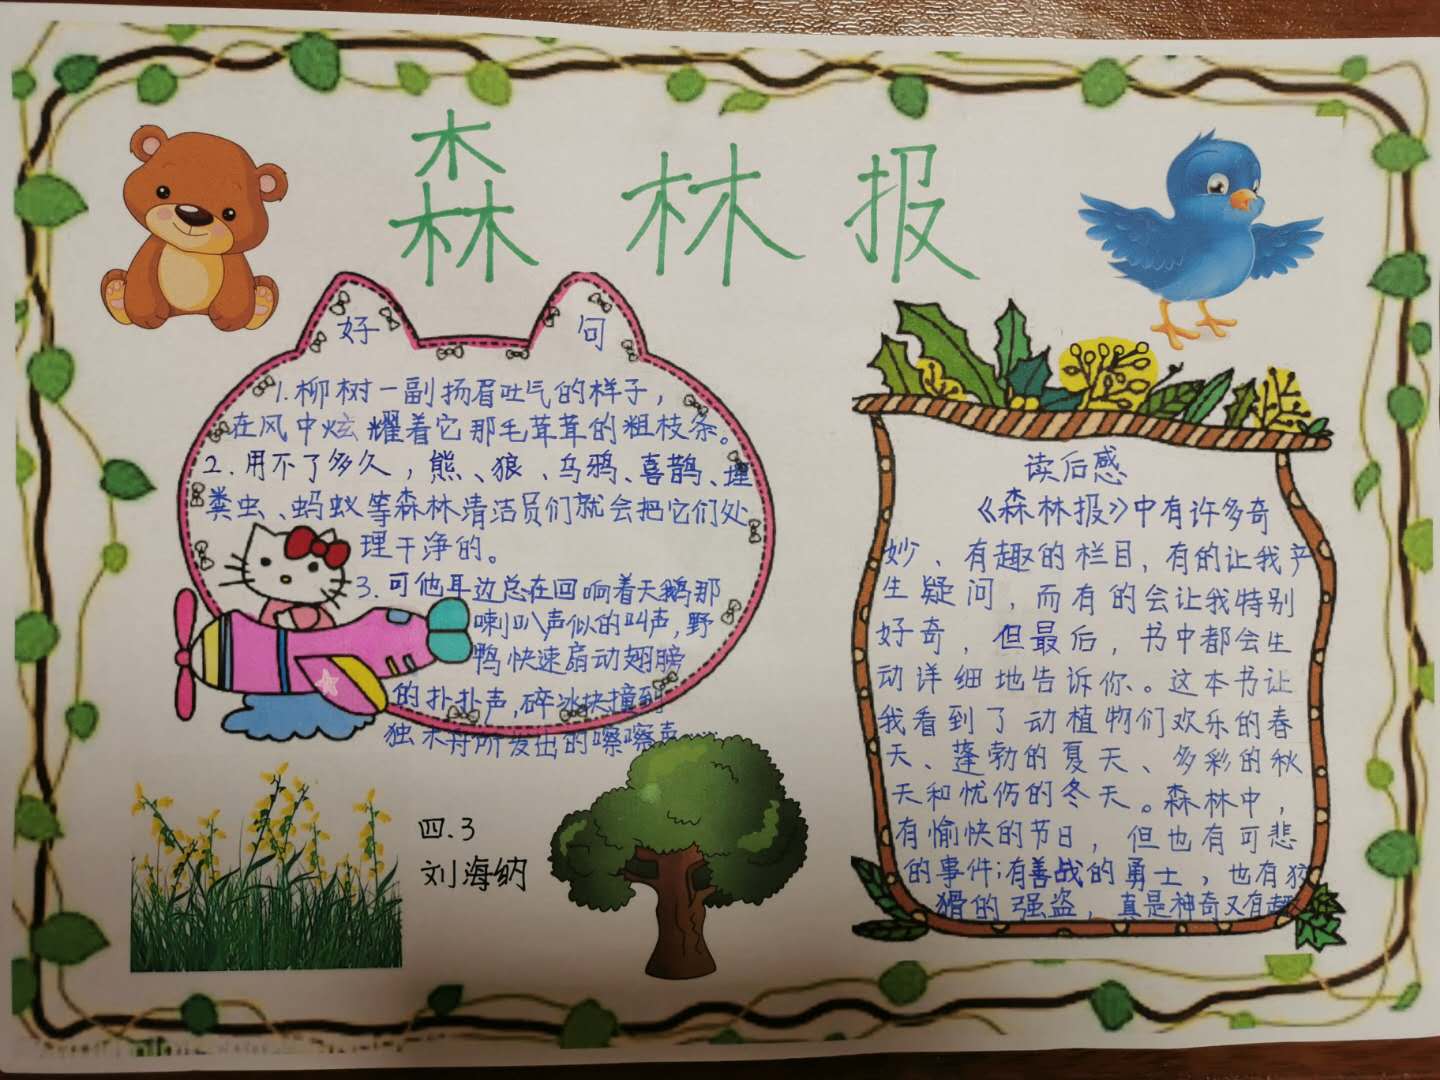 森林报
好句
1.柳树一副扬眉吐气的样子，
在风中炫耀着它那毛茸茸的粗枝条。
2.用不了多久，熊、狼、乌鸦、喜鹊、埋
粪虫、蚂蚁等森林清洁员们就会把它们处
理干净的。
3.可他耳边总在回响着天鹅那
喇叭声似的叫声，野
鸭快速扇动翅膀
的扑扑声，碎冰块撞到
独木舟所发出的嚓嚓声
四.3
刘海纳
读后感
《森林报》中有许多奇
妙、有趣的栏目，有的让我产
生疑问，而有的会让我特别
好奇，但最后，书中都会生
动详细地告诉你。这本书让
我看到了动植物们欢乐的春
天、蓬勃的夏天、多彩的秋
天和忧伤的冬天。森林中，
有愉快的节日，但也有可悲
的事件；有善战的勇士，也有狡
猾的强盗，真是神奇又有趣